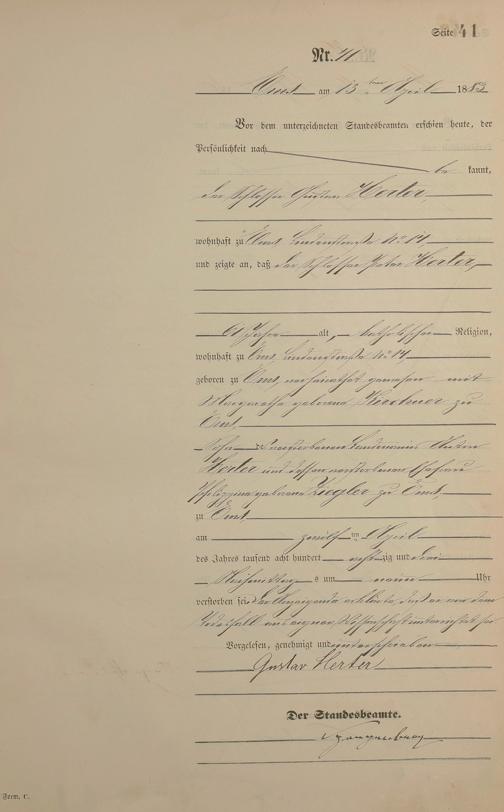 Seite 41
Nr. 41.
Ems am 13ten April 1883
Vor dem unterzeichneten Standesbeamten erschien heute, der
Persönlichkeit nach
be kannt,
der Schlosser Gustav Herter,
wohnhaft zu Ems, No 14,
und zeigte an, daß der Schlosser Peter Herter,
Jahre alt, katholischer Religion,
wohnhaft zu Ems, No 14,
geboren zu Ems, verheirathet gewesen mit
Margaretha geborene Kirchner zu
Ems,
Sohn des verstorbenen
Herter und dessen verstorbenen Ehefrau
Philippina geborene Ziegler zu Ems,
zu Ems
am zwölften April
des Jahres tausend acht hundert achtzig und drei
Nachmittags um neun Uhr
verstorben sei. Der Anzeigende erklärte, daß er von dem
Todesfall aus eigener Wissenschaft unterrichtet sei
Vorgelesen, genehmigt und unterschrieben
Gustav Herter
Der Standesbeamte.
Form. C.